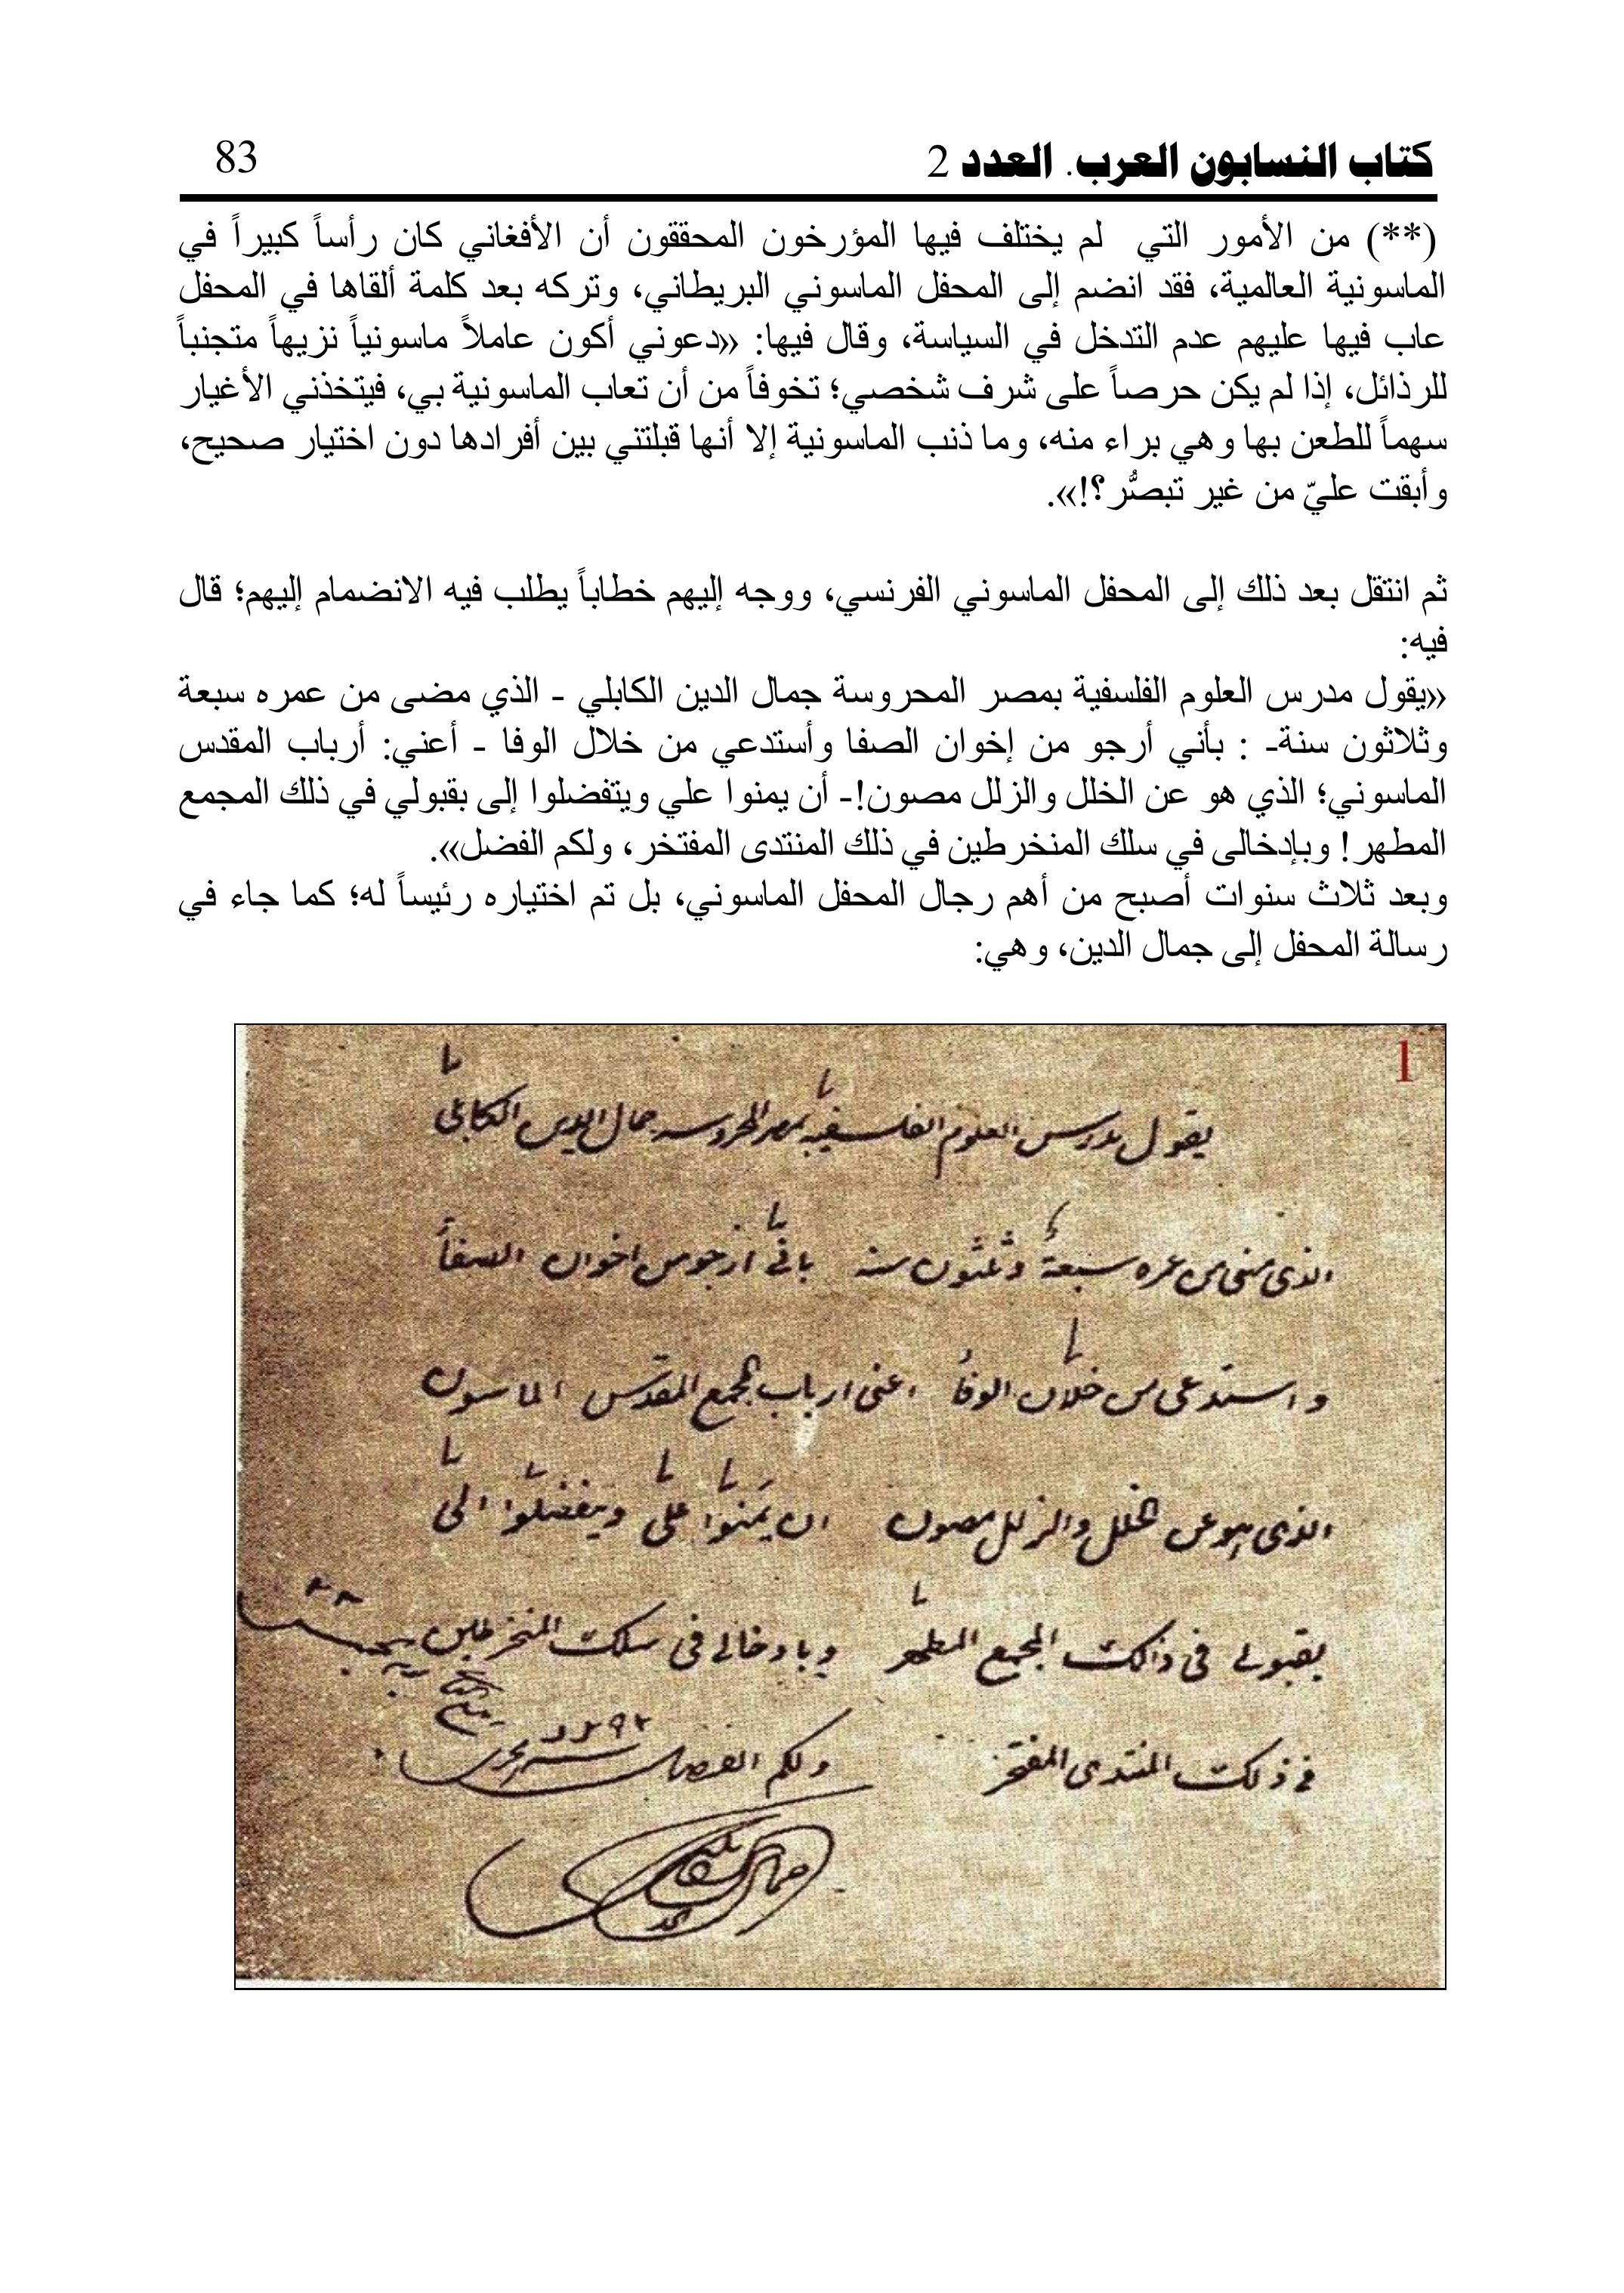 كتاب النسابون العرب. العدد 2
83
(**) من الأمور التي لم يختلف فيها المؤرخون المحققون أن الأفغاني كان رأساً كبيراً في
الماسونية العالمية، فقد انضم إلى المحفل الماسوني البريطاني، وتركه بعد كلمة ألقاها في المحفل
عاب فيها عليهم عدم التدخل في السياسة، وقال فيها: «دعوني أكون عاملاً ماسونياً نزيهاً متجنباً
للرذائل، إذا لم يكن حرصاً على شرف شخصي؛ تخوفاً من أن تعاب الماسونية بي، فيتخذني الأغيار
سهماً للطعن بها وهي براء منه، وما ذنب الماسونية إلا أنها قبلتني بين أفرادها دون اختيار صحيح،
وأبقت عليّ من غير تبصُّر؟!».
ثم انتقل بعد ذلك إلى المحفل الماسوني الفرنسي، ووجه إليهم خطاباً يطلب فيه الانضمام إليهم؛ قال
فيه:
«يقول مدرس العلوم الفلسفية بمصر المحروسة جمال الدين الكابلي - الذي مضى من عمره سبعة
وثلاثون سنة- : بأني أرجو من إخوان الصفا وأستدعي من خلال الوفا - أعني: أرباب المقدس
الماسوني؛ الذي هو عن الخلل والزلل مصون!- أن يمنوا علي ويتفضلوا إلى بقبولي في ذلك المجمع
المطهر! وبإدخالى في سلك المنخرطين في ذلك المنتدى المفتخر، ولكم الفضل».
وبعد ثلاث سنوات أصبح من أهم رجال المحفل الماسوني، بل تم اختياره رئيساً له؛ كما جاء في
رسالة المحفل إلى جمال الدين، وهي:
1
يقول مدرس العلوم الفلسفية بمصر المحروسه جمال الدين الكابلى
الذى مضى من عمره سبعة وثلثون سنه بانى ارجو من اخوان الصفا
واستدعى من خلان الوفا اعنى ارباب المجمع المقدس الماسون
الذى هو عن الخلل والزلل مصون ان يمنوا على ويتفضلوا الى
بقبولى فى ذلك المجمع المطهر وبادخالى فى سلك المنخرطين
فى ذلك المنتدى المفتخر ولكم الفضل
جمال الدين